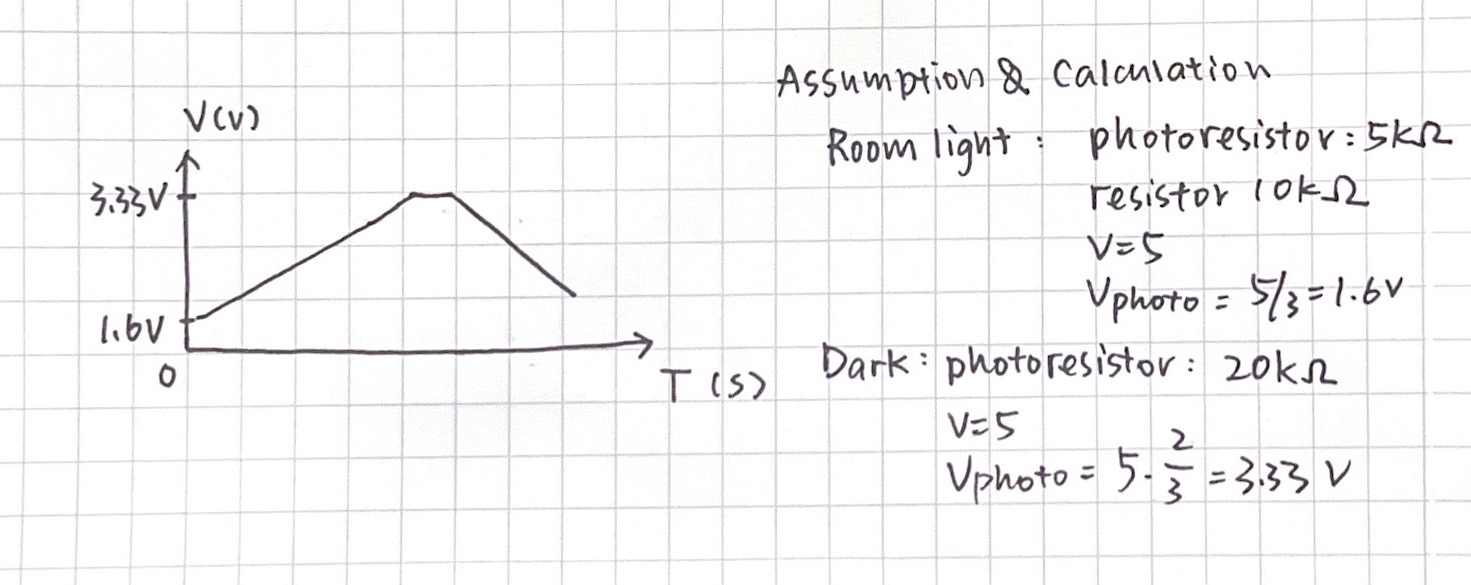 V(V)
3.33V
1.6V
0
T (S)
Assumption & Calculation
Room light : photoresistor: 5kΩ
resistor 10kΩ
V=5
Vphoto = 5/3 = 1.6V
Dark: photoresistor: 20kΩ
V=5
Vphoto = 5·2/3 = 3.33 V